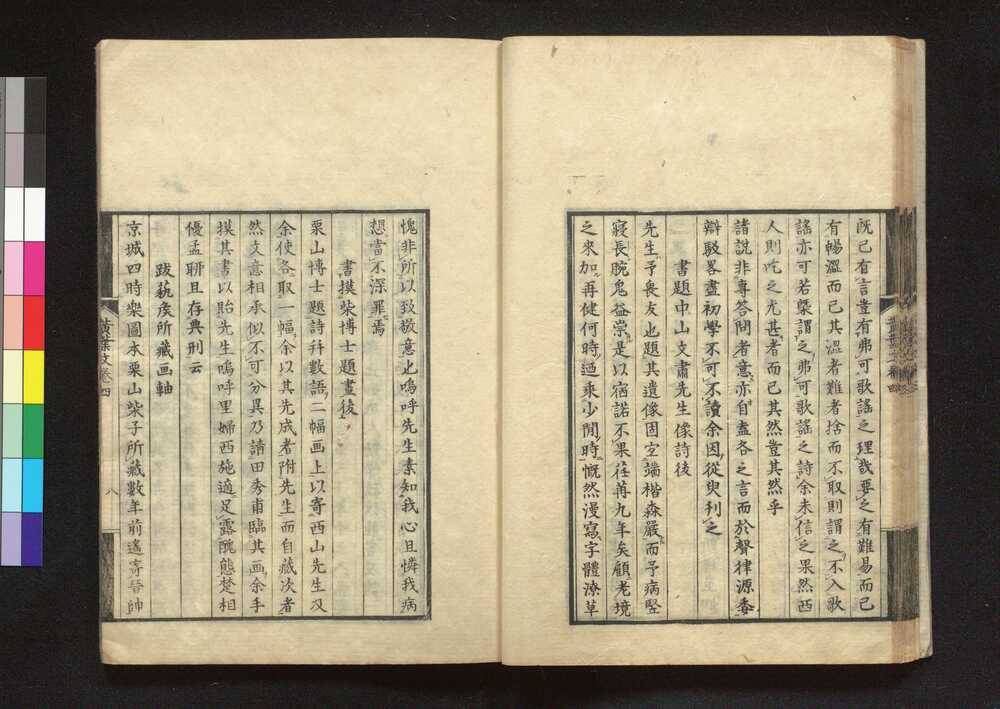 既已有言豈有弗可歌謠之理哉要之有難易而已
有暢澀而已其澀者難者捨而不取則謂之不入歌
謠亦可若槩謂之弗可歌謠之詩余未信之果然西
人則吃之尤甚者而已其然豈其然乎
諸説非專答問者意亦自盡各之言而於聲律源委
辯駁畧盡初學不可不讀余因從臾利之
書題中山文肅先生像詩後
先生予喪友也題其遺像固空端楷森嚴而予病堅
寢長腕鬼益崇是以宿諾不果荏苒九年矣顧老境
之來加再健何時過乘少間時慨然漫寫字體潦草
愧非所以致敬意也嗚呼先生素知我心且憐我病
想當不深罪焉
書摸柴博士題畫後
栗山博士題詩并數語二幅画上以寄西山先生及
余使各取一幅余以其先成者附先生而自藏次者
然文意相承似不可分異乃請田秀甫臨其画余手
摸其書以貽先生嗚呼里婦西施適足露醜態楚相
優孟聊且存典刑云
跋藐矦所藏画軸
京城四時樂圖本栗山柴子所藏數年前遙寄晉帥
黄葉文卷四
八